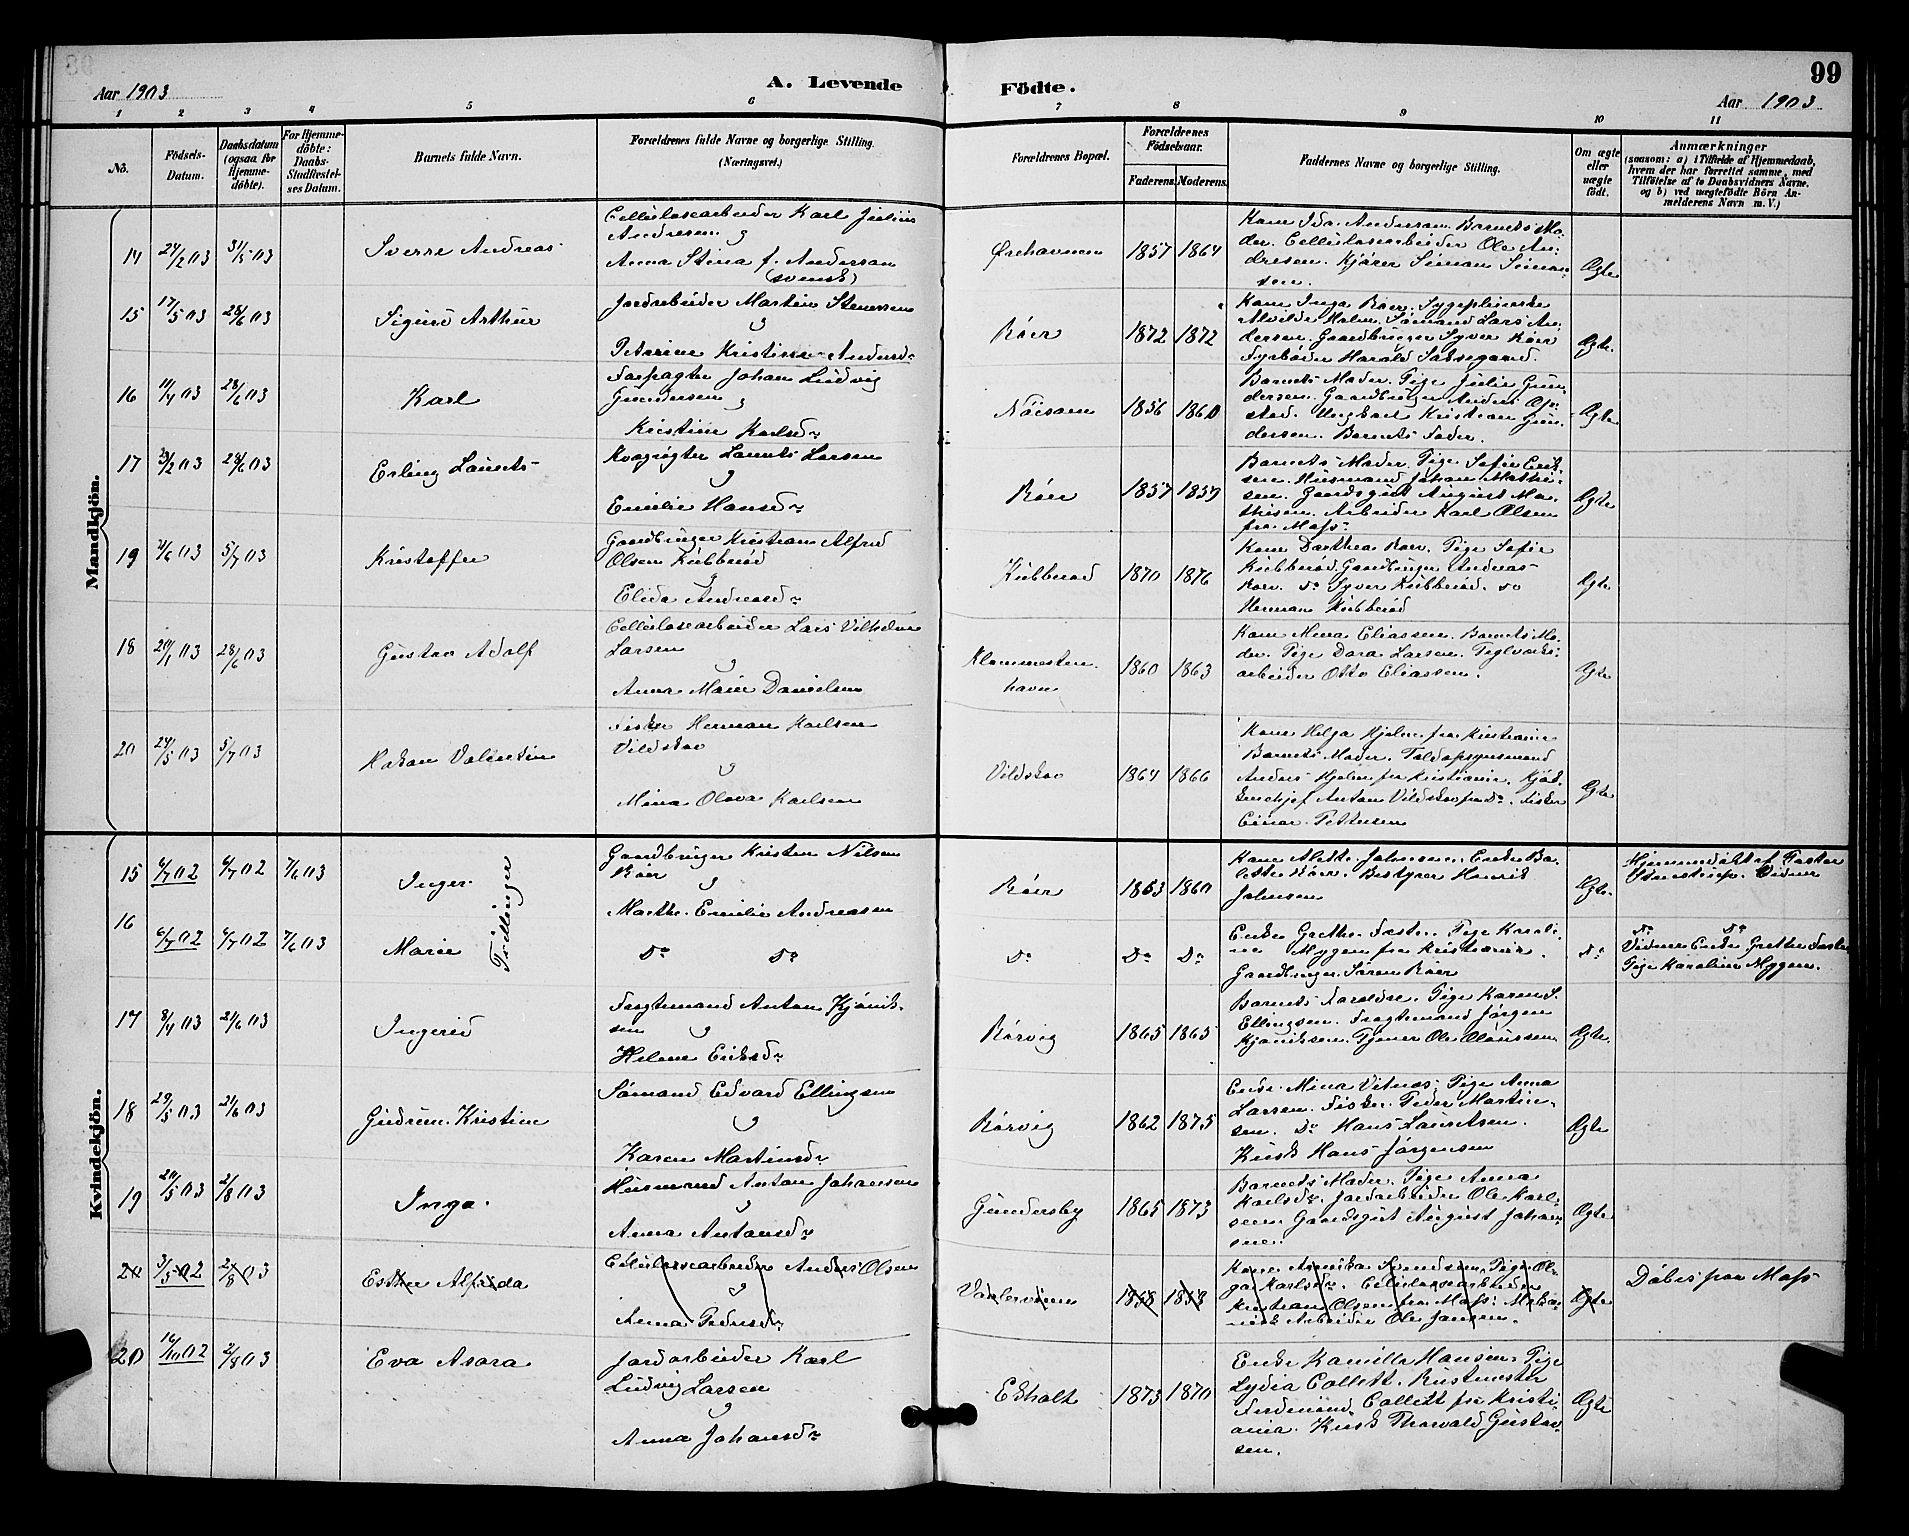 99
A. Levende Födte.
Aar 1903
Aar 1903
1 2 3 4 5 6 7 8 9 10 11
No.
Födsels-
Datum.
Daabsdatum
(ogsaa for
Hjemme-
döbte).
For Hjemme-
döbte:
Daabs-
Stadfæstel-
ses Datum.
Barnets fulde Navn.
Forældrenes fulde Navne og borgerlige Stilling.
(Næringsvei.)
Forældrenes Bopæl.
Forældrenes
Födselsaar.
Faderens. Moderens.
Faddernes Navne og borgerlige Stilling.
Om ægte
eller
uægte
födt.
Anmærkninger
(saasom: a) i Tilfælde af Hjemmedaab,
hvem der har forrettet samme, med
Tilföielse af to Daabsvidners Navne,
og b) ved uægtefödte Börn An-
melderens Navn m. V.)
Mandkjön.
14 27/2 03 31/5 03 Sverre Andreas
Cellulosearbeider Karl Julius
Andresen
og
Anna Stina f. Anderson
(svensk)
Ørehavnen 1857 1864
Kone Ida Anderson. Barnets Mo-
der. Cellulosearbeider Ole An-
dresen. Kjører Simon Simon-
sen.
Ægte
15 17/5 03 28/6 03 Sigurd Arthur
Jordarbeider Martin Stenersen
og
Petrine Kristine Andersdr
Röer 1872 1872
Kone Inga Röer. Sygepleierske
Alvilde Holm. Sömand Lars An-
dersen. Gaardbruger Syver Röer
Fyrböder Harald Saksegaard.
Ægte.
16 11/4 03 28/6 03 Karl
Forpagter Johan Ludvig
Gundersen
og
Kristine Karlsdr
Nöisom 1856 1860
Barnets Moder. Pige Julie Gun-
dersen. Gaardbruger Anders Op-
stad. Ungkarl Kristian Gun-
dersen. Barnets Fader.
Ægte
17 23/2 03 28/6 03 Erling Laurits
Kvægrögter Laurits Larsen
og
Emilie Hansdr
Röer 1857 1857
Barnets Moder. Pige Sofie Erik-
sen. Husmand Johan Mathi-
sen. Gaardsgut August Ma-
thisen. Arbeider Karl Olsen
fra Moss
Ægte
19 2/6 03 5/7 03 Kristoffer
Gaardbruger Kristian Alfred
Olsen Kubberöd
og
Elida Andreasdr
Kubberöd 1870 1876
Kone Dorthea Röer. Pige Sofie
Kubberöd. Gaardbruger Andreas
Röer. Do Syver Kubberöd. Do
Herman Kubberöd
Ægte
18 20/1 03 28/6 03 Gustav Adolf
Cellulosearbeider Lars Vilhelm
Larsen
og
Anna Marie Danielsen
Klommesten
havn 1860 1863
Kone Mina Eliassen. Barnets Mo-
der. Pige Dora Larsen. Teglværks-
arbeider Otto Eliassen.
Ægte
20 24/5 03 5/7 03 Hakon Valentin
Fisker Herman Karlsen
Vildskov
og
Mina Olava Karlsen
Vildskov 1864 1866
Kone Helga Hjelm fra Kristiania
Barnets Moder. Toldopsynsmand
Anders Hjelm fra Kristiania. Kjök-
kenchef Anton Vildskov fra Do. Fisker
Einar Pettersen
Ægte
Kvindekjön.
15 6/7 02 6/7 02 7/6 03 Inger
Tvillinger
Gaardbruger Kristen Nilsen
Röer
og
Marthe Emilie Andreasen
Röer 1863 1860
Kone Alette Johnsen. Enke Bo-
lette Röer. Bestyrer Henrik
Johnsen
Ægte.
Hjemmedöbt af Faster
Vidner
16 6/7 02 6/7 02 7/6 03 Marie
Do Do
Do Do Do
Enke Grethe Foster. Pige Karoli-
ne Myggen fra Kristiania.
Gaardbruger Sören Röer
Do
Do Do
Vidner Enke Grethe Foster
Pige Karoline Myggen.
17 8/4 03 21/6 03 Ingerid
Fragtemand Anton Kjönik-
sen
og
Helene Eriksdr
Rörvig 1865 1865
Barnets Foreldre. Pige Karen S.
Ellingsen. Fragtemand Jörgen
Kjöniksen. Tjener Ole Olaussen
Ægte.
18 29/5 03 21/6 03 Gudrun Kristine
Sömand Edvard Ellingsen
og
Karen Martinsdr
Rörvig 1862 1875
Enke Mina Vitnæs. Pige Anna
Larsen. Fisker Peder Martin-
sen. Do Hans Lauritsen.
Kusk Hans Jörgensen
Ægte
19 20/5 03 2/8 03 Inga
Husmand Anton Johansen
og
Anna Antonsdr
Gundersby 1865 1873
Barnets Moder. Pige Anna
Karlsdr. Jordarbeider Ole Karl-
sen. Gaardsgut August Johan-
sen.
Ægte
20 3/5 02 2/8 03 Esther Alfrida
Cellulosearbeider Anders Olsen
og
Anna Pedersdr
1868 1868
Kone Annika Svendsen. Pige Ol-
ga Karlsdr. Cellulosearbeider
Kristian Olsen fra Moss. Meka-
nisk Arbeider Ole Jansen.
Ægte
Döbt paa Moss
20 16/10 02 2/8 03 Eva Asora
Jordarbeider Karl
Ludvig Larsen
og
Anna Johansdr
Ekholt 1873 1870
Enke Kamilla Hansen. Pige
Lydia Collett. Rustmester
Ferdinand Collett fra Kristi-
ania. Kusk Thorvald Gustav-
sen.
Ægte